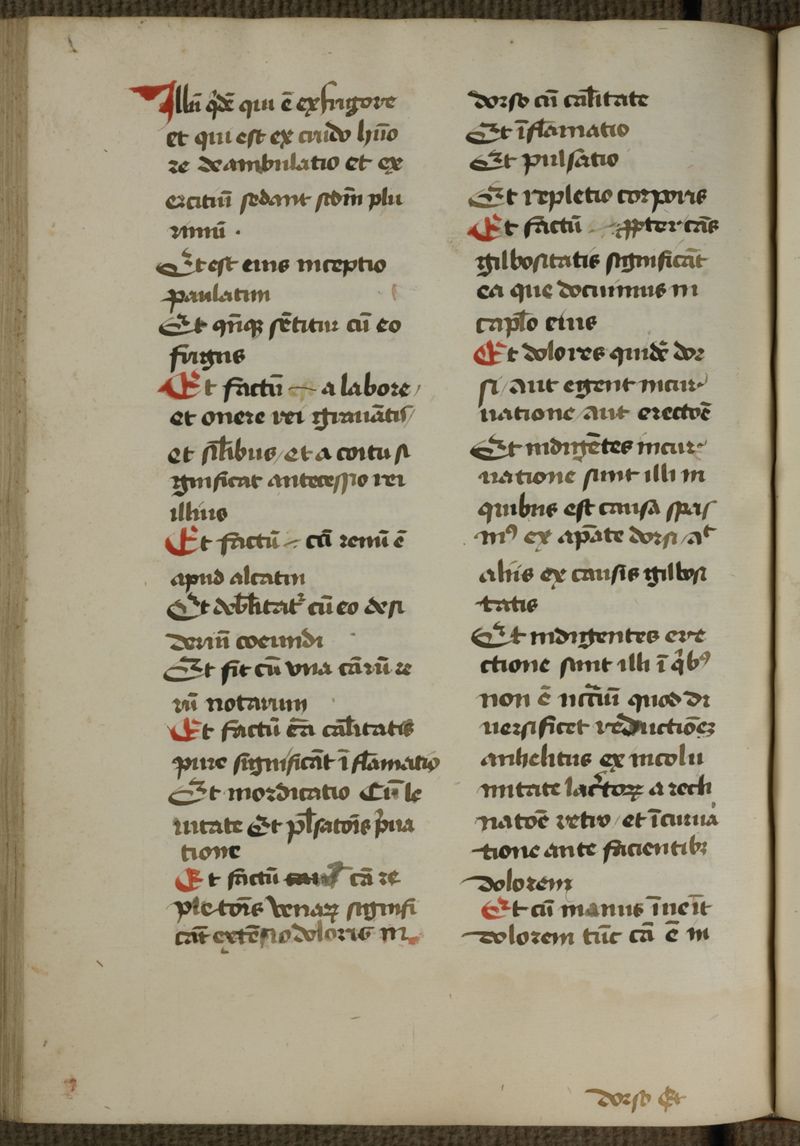 Illū qdē qui ē ex frigore
et qui est ex crudo hūo
re deambulatio et ex
ercitiū sedant sedm̄ plu
rimū .
Et est eius inceptio
paulatim
Et qn̄qꝫ sētitur cū eo
frigus
Et factū — a labore
et onere rei grauātis
et sil̄ibus et a coitu si
gnificat antecessio rei
illius
Et factū cū renū ē
apud alcatin
Et debilitat᷑ cū eo desi
deriū coeundi
Et fit cū vna cārū re
nū notarum
Et factū cā cal̄itatis
pure significāt īflamatio
Et mordicatio Cū le
uitate Et pl̄satōis p̄ua
tione
Et factū cā re
pletōis venaꝝ signifi
cāt extēsio doloris in
dorso cū cal̄itate
Et īflamatio
Et pulsatio
Et repletio corporis
Et factū ꝓpter cās
gilbositatis significāt
ea que docuimus in
capl̄o eius
Et dolores quidē dor
si aut egent incur
uatione aut erectōe
Et indigētes incur
uatione sunt illi in
quibus est causa spas
mꝰ ex apate dorsi at
aliis ex causis gilbosi
tatis
Et indigentes ere
ctione sunt illi ī qibꝰ
non ē nccīū quod di
uersificet reductiōeꝫ
anhelitus ex incolu
mitate lacertoꝝ a recli
natōe retro et īcuruā
tione ante facientibꝫ
dolorem
Et cū manus īueīt
dolorem tūc cā ē in
dorso Et